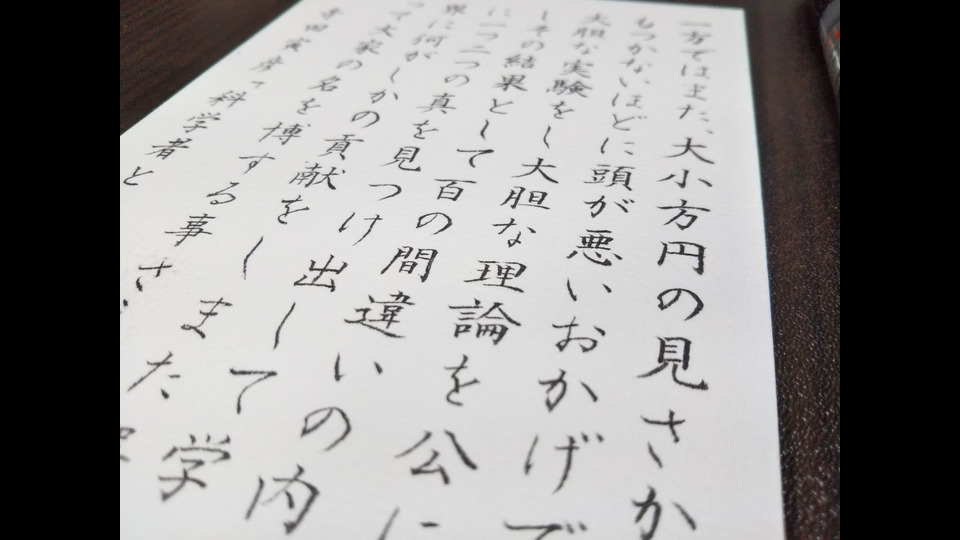 一方ではまた、大小方円の見さか
もつかないほどに頭が悪いおかげで
大胆な実験をし大胆な理論を公に
しその結果として百の間違いの内
に一つ二つの真を見つけ出して学
界に何がしかの貢献をしまた
って大家の名を博する事さ
寺田寅彦「科学者と